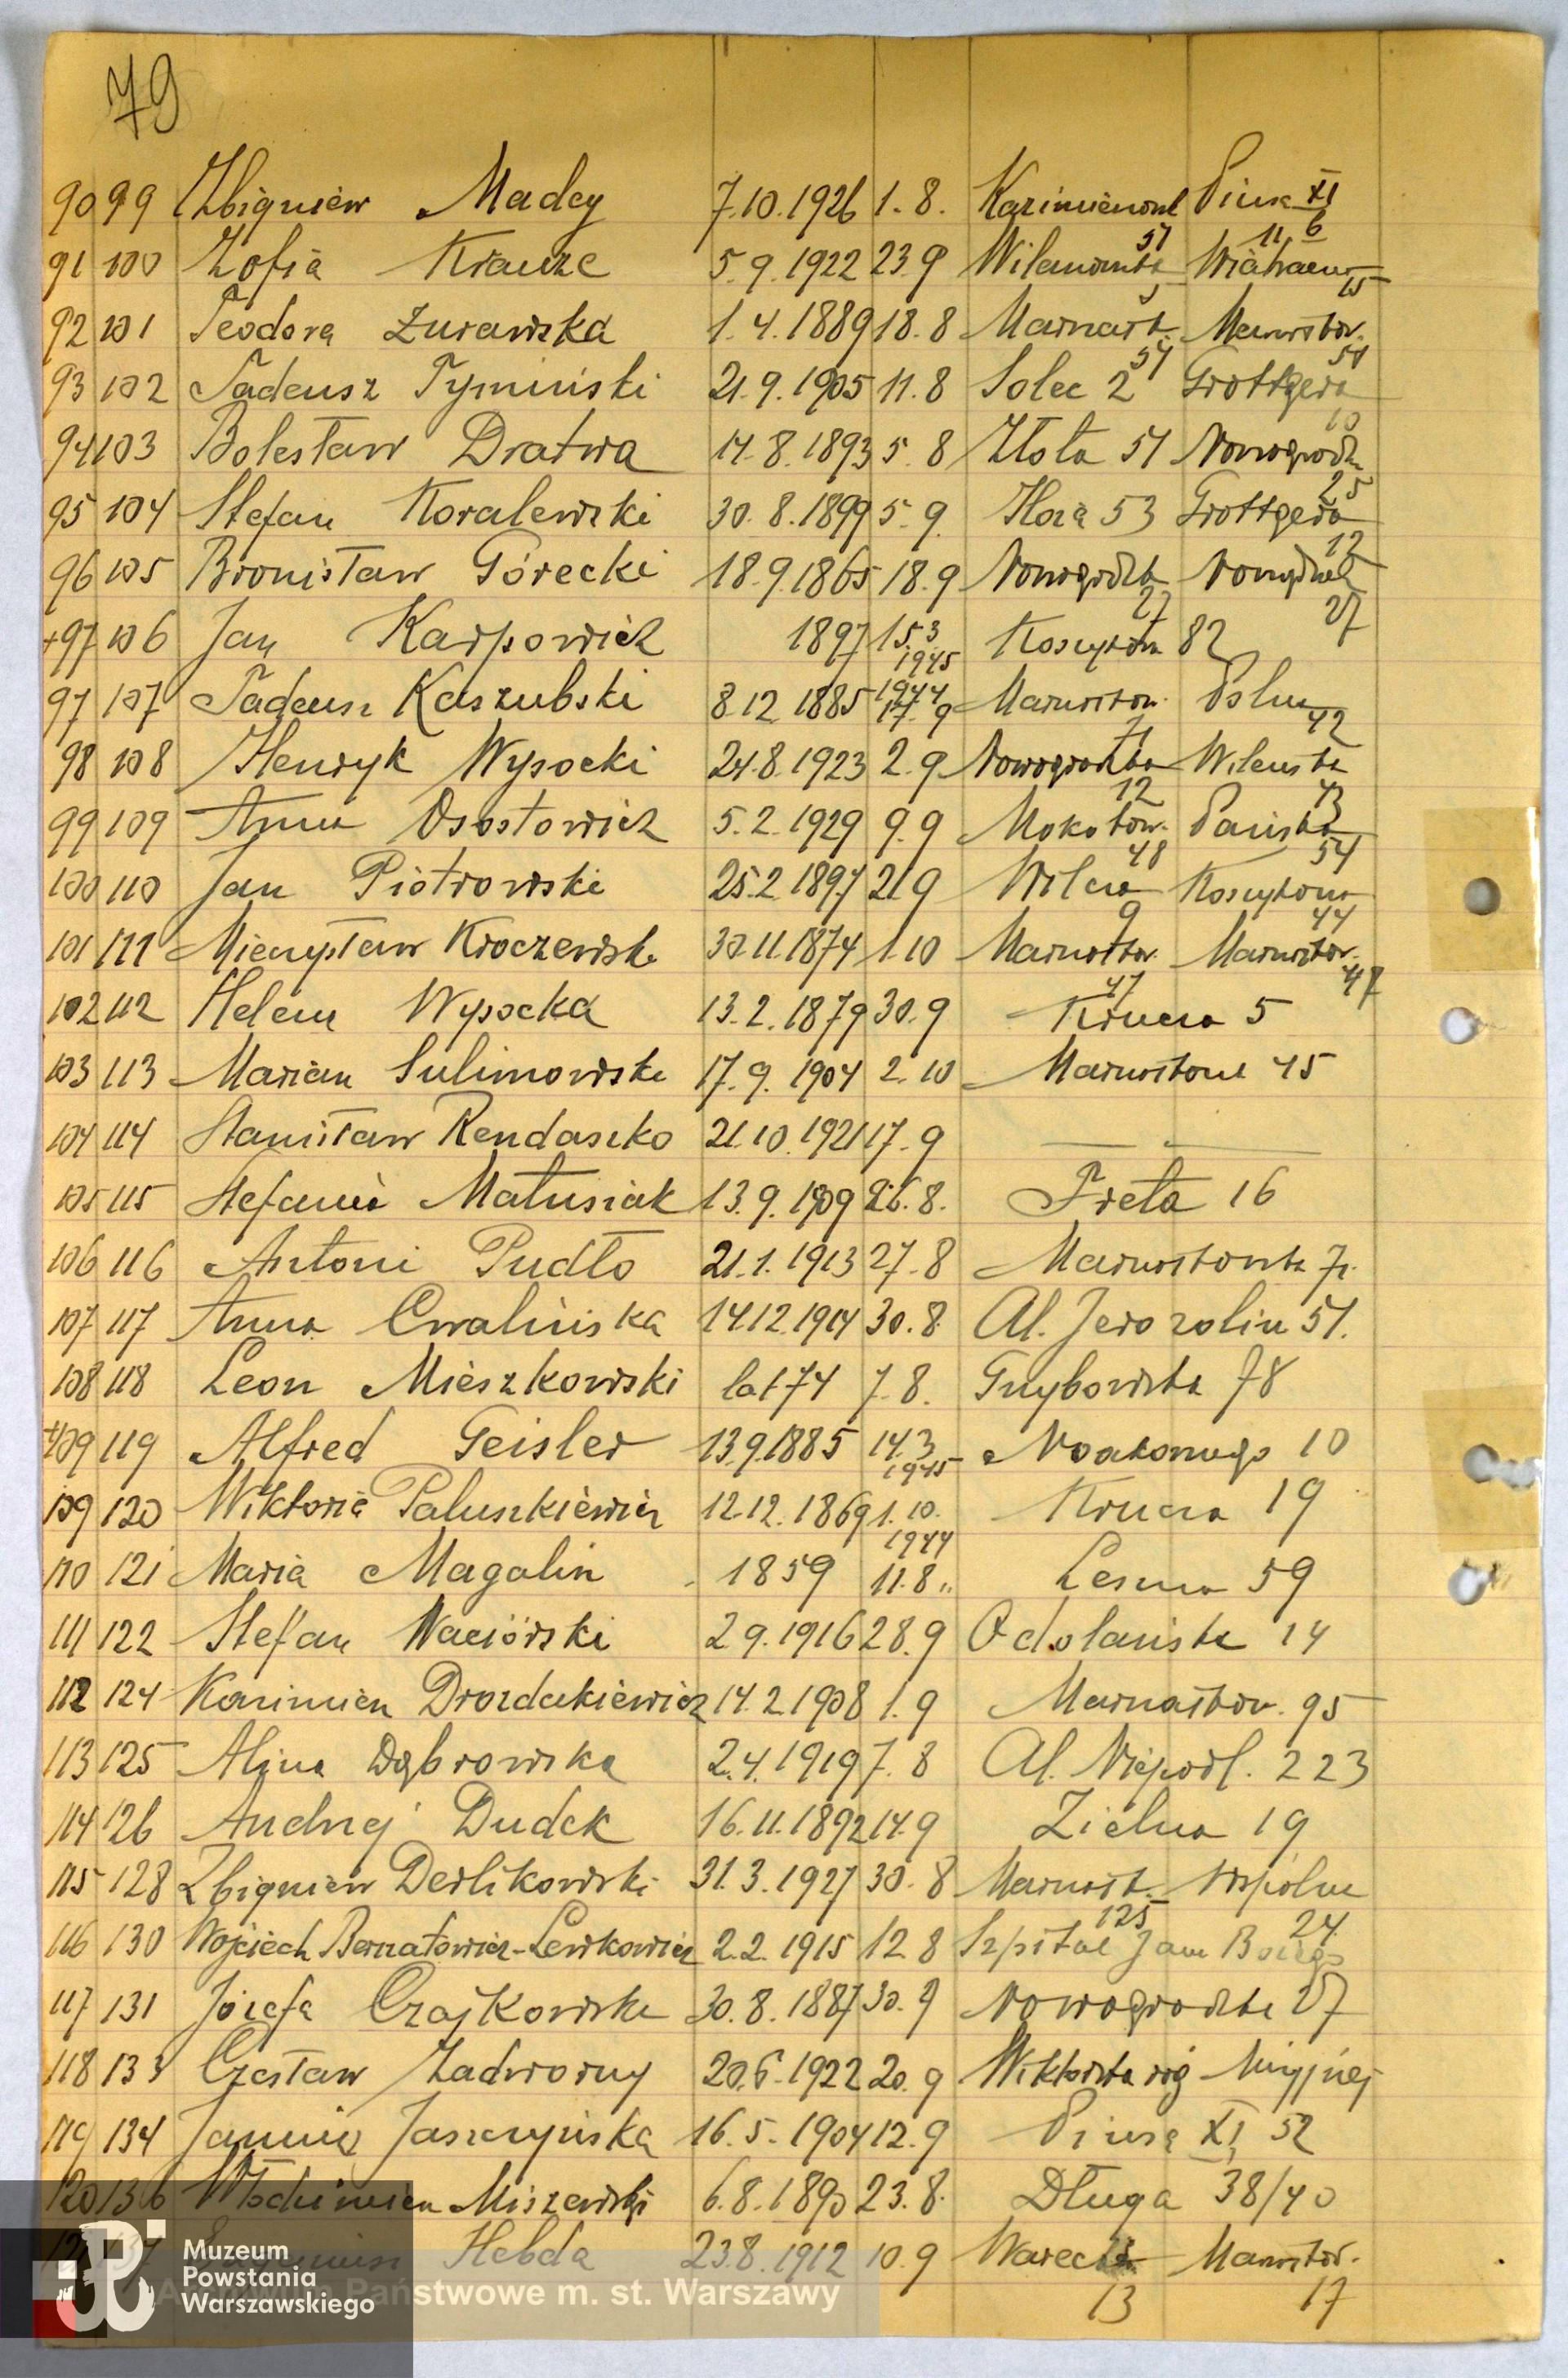 79
90 99 Zbigniew Madey 7.10.1926 1.8. Pius XI
11 6
91 100 Zofia Krauze 5.9.1922 23.9
57 15
92 101 Teodora Żurawska 1.4.1889 18.8
93 102 Tadeusz Tymiński 21.9.1905 11.8 Solec 2 Grottgera
94 103 Bolesław Dratwa 14.8.1893 5.8 Złota 51 Nowogrodz
95 104 Stefan Kovalewski 30.8.1899 5.9. Hoża 53 Grottgera
96 105 Bronisław Górecki 18.9.1865 18.9 Nowogrodzka
27 27
+97 106 Jan Karpowicz 1897 15.3 1945 82
97 107 Tadeusz Kaszubski 8.12.1885 1944 17.9 Marszałkow.
98 108 Henryk Wysocki 24.8.1923 2.9 Nowogrodzka Wileńska
12 43
99 109 Anna Ossostowicz 5.2.1929 9.9 Mokotow. Pańska
48 54
100 110 Jan Piotrowski 25.2.1897 21.9 Wilcza Koszykowa
9 44
101 111 Mieczysław Kroczewski 30.11.1874 1.10 Marszałkow. Marszałkow.
47 47
102 112 Helena Wysocka 13.2.1879 30.9 Krucza 5
103 113 Marian Sulimowski 17.9.1904 2.10 45
104 114 Stanisław Rendaszko 21.10.1921 17.9 — " —
105 115 Stefania Matusiak 13.9.1909 26.8. Freta 16
106 116 Antoni Pudło 21.1.1913 27.8
107 117 Anna Cwalińska 14.12.1914 30.8. Al. Jerozolim 51.
108 118 Leon Mieszkowski lat 74 7.8. Grzybowska 78
+109 119 Alfred Geisler 13.9.1885 14.3 1945 Noakowskiego 10
109 120 Wiktoria Paluszkiewicz 12.12.1869 1.10. 1944 Krucza 19
110 121 Maria Magalin 1859 11.8 " Leszno 59
111 122 Stefan Naciórski 2.9.1916 28.9 Odolańska 14
112 124 Kazimierz Drozdakiewicz 14.2.1908 1.9 Marszałkow. 95
113 125 Alina Dąbrowska 2.4.1919 7.8 Al. Niepodl. 223
114 126 Andrzej Dudek 16.11.1892 14.9 Zielna 19
115 128 Zbigniew Derlikowski 31.3.1927 30.8 Marszałk. Wspólna
125 24
116 130 Wojciech Bernatowicz-Lewkowicz 2.2.1915 12.8 Szpital Jana Bożego
117 131 Józefa Czajkowska 30.8.1887 30.9 Nowogrodzka 27
118 133 Czesław Zadworny 20.6.1922 20.9 Wiktorska róg Misyjnej
119 134 Janina Jaszczyńska 16.5.1904 12.9 Piusa XI 52
120 136 Włodzimierz Miszewski 6.8.1890 23.8. Długa 38/40
Hebda 23.8.1912 10.9 Warecka Marszałkow.
13 17
Muzeum
Powstania
Warszawskiego
Archiwum Państwowe m. st. Warszawy